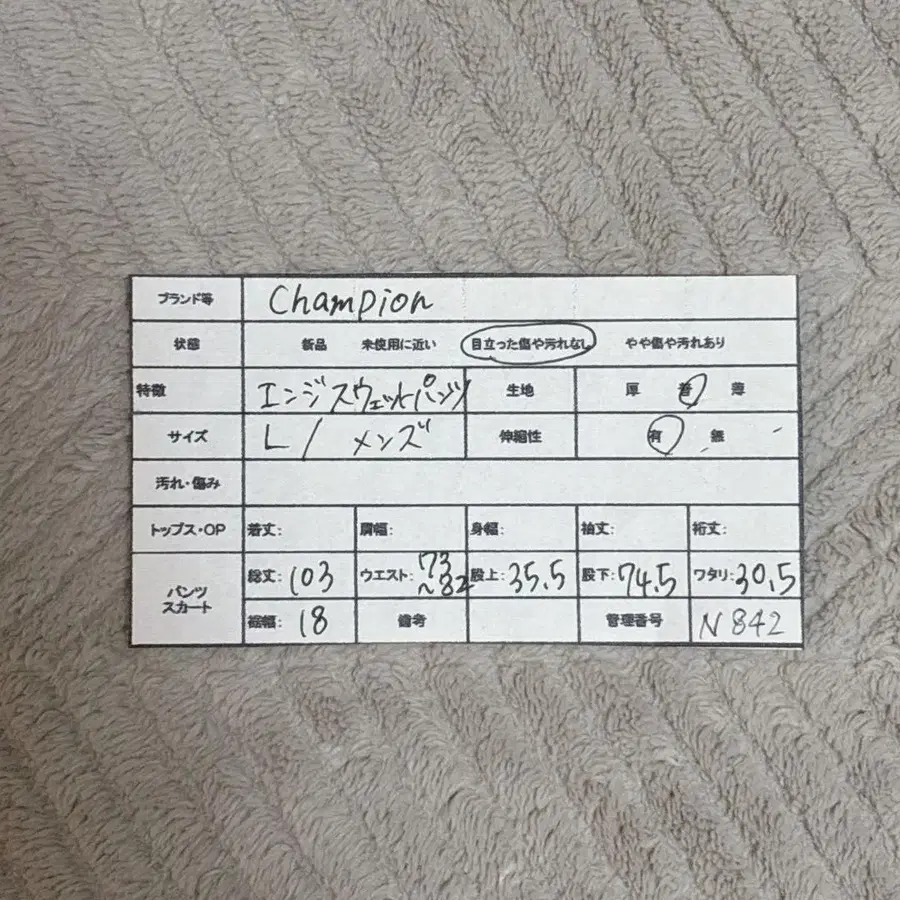 ブランド等 Champion
状態 新品 未使用に近い 目立った傷や汚れなし やや傷や汚れあり
特徴 エンジスウェットパンツ 生地 厚 普 薄
サイズ L/メンズ 伸縮性 有 無
汚れ・傷み
トップス・OP 着丈: 肩幅: 身幅: 袖丈: 裄丈:
パンツ スカート 総丈: 103 ウエスト: 73~82 股上: 35.5 股下: 74.5 ワタリ: 30.5
裾幅: 18 備考 管理番号 N842